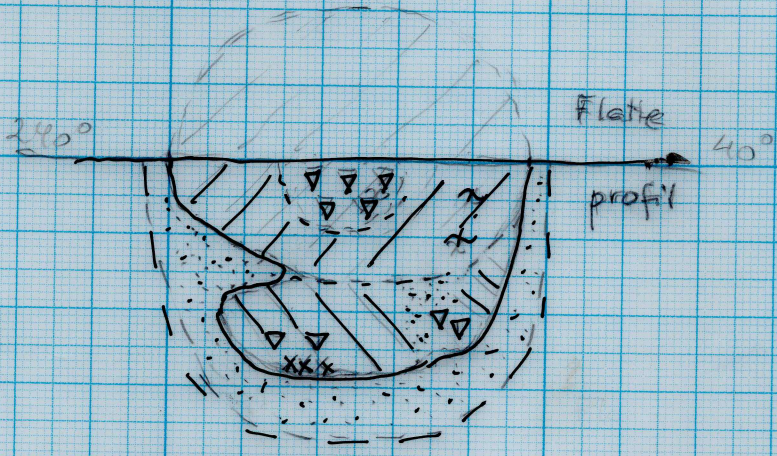 240°
Flate
40°
profil